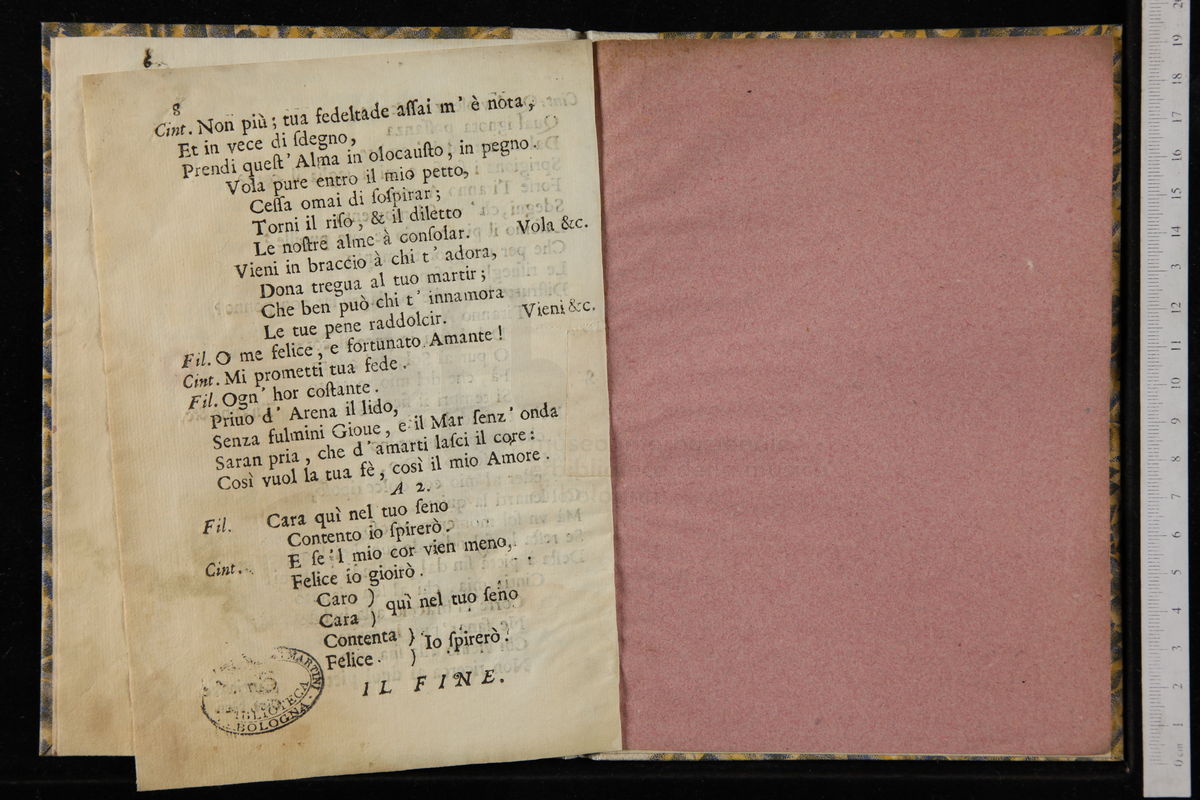 8
Cint. Non più; tua fedeltade aſſai m' è nota,
Et in vece di ſdegno,
Prendi queſt' Alma in olocauſto, in pegno.
Vola pure entro il mio petto,
Ceſſa omai di ſoſpirar;
Torni il riſo, & il diletto
Le noſtre alme à conſolar. Vola &c.
Vieni in braccio à chi t' adora,
Dona tregua al tuo martir;
Che ben può chi t' innamora
Le tue pene raddolcir. Vieni &c.
Fil. O me felice, e fortunato Amante!
Cint. Mi prometti tua fede.
Fil. Ogn' hor coſtante.
Priuo d' Arena il lido,
Senza fulmini Gioue, e il Mar ſenz' onda
Saran pria, che d' amarti laſci il core:
Così vuol la tua fè, così il mio Amore.
A 2.
Fil. Cara quì nel tuo ſeno
Contento io ſpirerò.
Cint. E ſe 'l mio cor vien meno,
Felice io gioirò.
Caro )
Cara ) quì nel tuo ſeno
Contenta )
Felice. ) Io ſpirerò.
IL FINE.
MARTINI
BIBLIOTECA
BOLOGNA